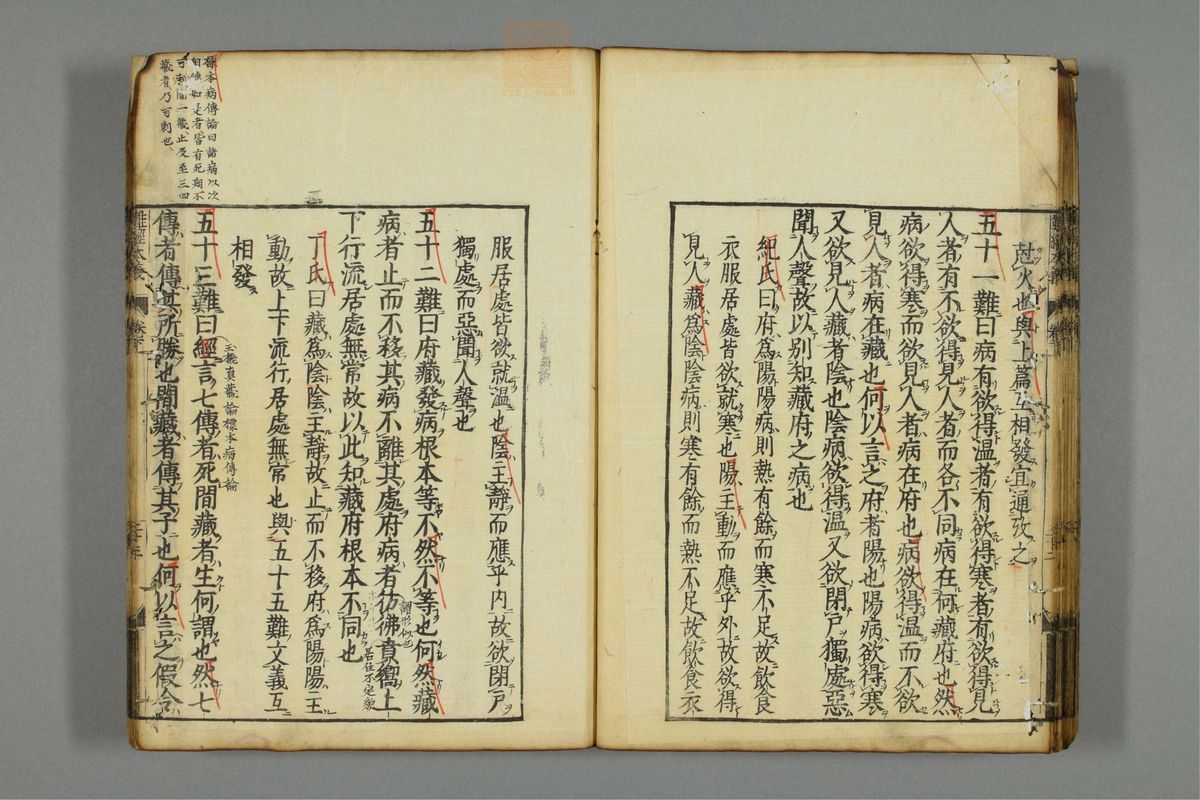 尅火也與上篇互相發宜通攷之
五十一難曰病有欲得溫者有欲得寒者有欲得見
人者有不欲得見人者而各不同病在何藏府也然
病欲得寒而欲見人者病在府也病欲得溫而不欲
見人者病在藏也何以言之府者陽也陽病欲得寒
又欲見人藏者陰也陰病欲得溫又欲閉戶獨處惡
聞人聲故以別知藏府之病也
紀氏曰府爲陽陽病則熱有餘而寒不足故飲食
衣服居處皆欲就寒也陽主動而應乎外故欲得
見人藏爲陰陰病則寒有餘而熱不足故飲食衣
服居處皆欲就溫也陰主靜而應乎内故欲閉戶
獨處而惡聞人聲也
五十二難曰府藏發病根本等不然不等也何然藏
病者止而不移其病不離其處府病者彷彿賁嚮上
下行流居處無常故以此知藏府根本不同也
謂形似也
居住不定貌
丁氏曰藏爲陰陰主靜故止而不移府爲陽陽主
動故上下流行居處無常也與五十五難文義互
相發
五十三難曰經言七傳者死間藏者生何謂也然七
玉機真藏論標本病傳論
傳者傳其所勝也間藏者傳其子也何以言之假令
標本病傳論曰諸病以次
相傳如是者皆有死期不
可刺間一藏止及至三四
藏者乃可刺也